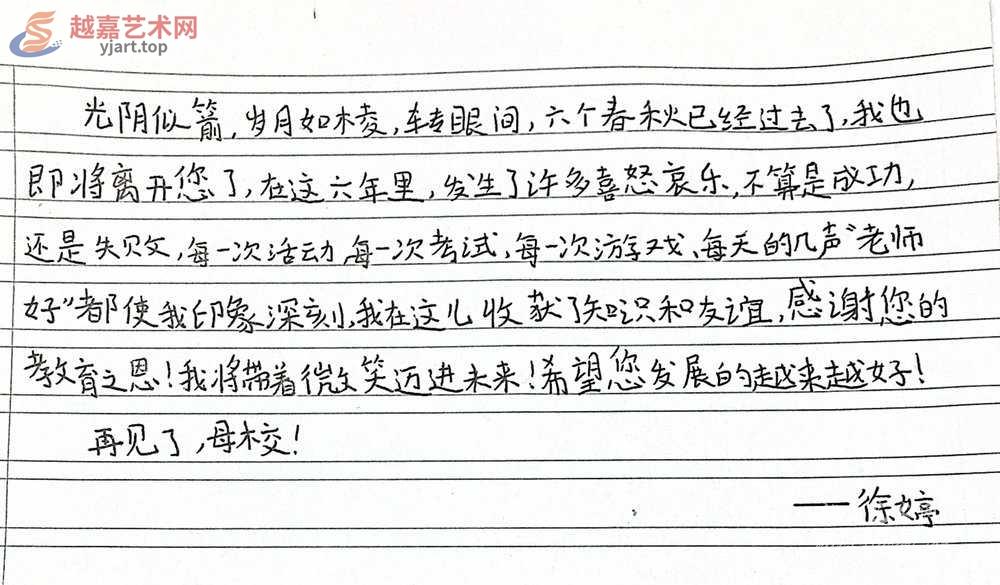 越嘉艺术网
yjart.top
光阴似箭,岁月如梭,转眼间,六个春秋已经过去了,我也
即将离开您了,在这六年里,发生了许多喜怒哀乐,不算是成功,
还是失败,每一次活动、每一次考试,每一次游戏、每天的几声“老师
好”都使我印象深刻,我在这儿收获了知识和友谊,感谢您的
教育之恩!我将带着微笑迈进未来!希望您发展的越来越好!
再见了,母校!
——徐婷